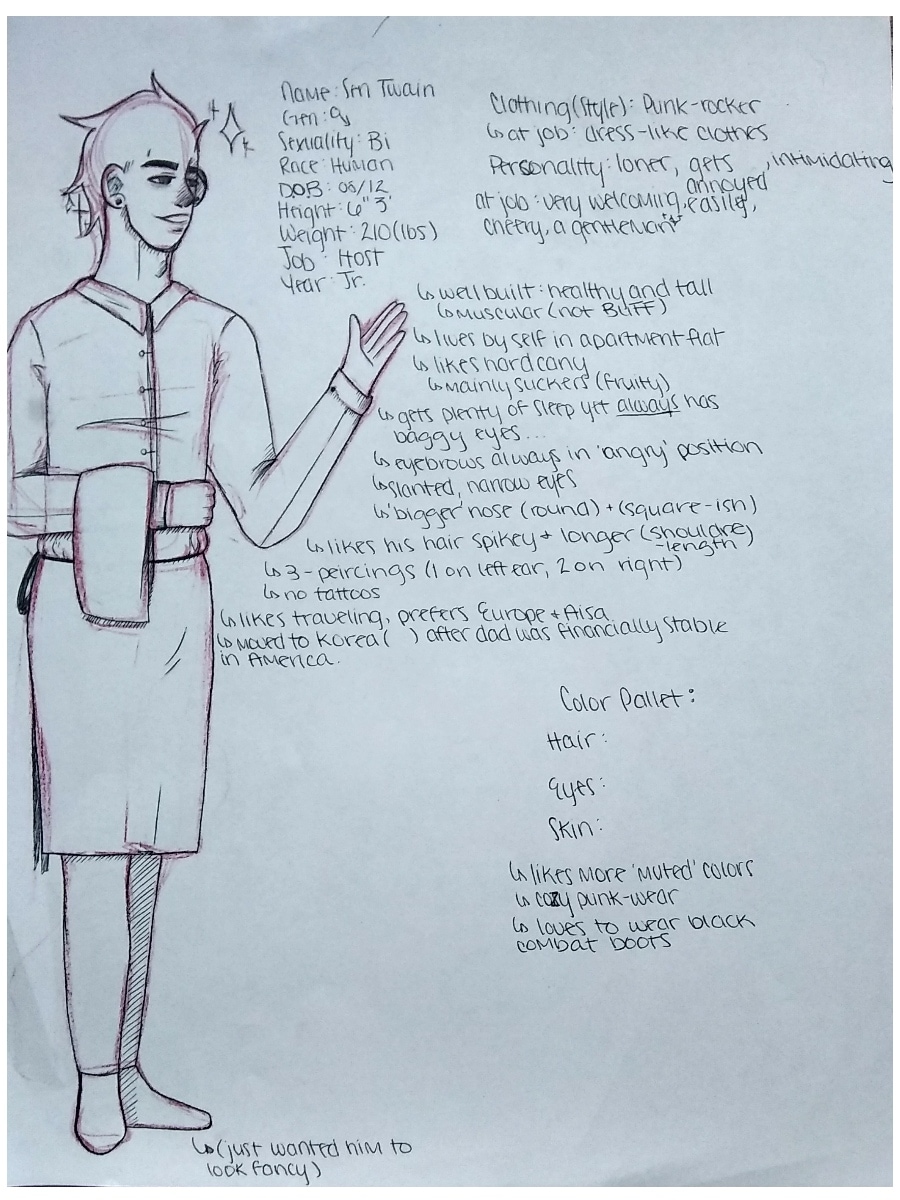 Name: Sen Twain
Gen:
Sexuality: Bi
Race: Human
DOB: 08/12
Height: 6" 3'
Weight: 210(lbs)
Job: Host
Year: Jr.
Clothing(style): Punk-rocker
↳ at job: dress-like clothes
Personality: loner, gets annoyed easily, intimidating
at job: very welcoming,
cheery, a gentleman
↳ well built: healthy and tall
↳ Muscular (not Buff)
↳ lives by self in apartment flat
↳ likes hard cany
↳ mainly suckers (fruity)
↳ gets plenty of sleep yet always has
baggy eyes...
↳ eyebrows always in 'angry' position
↳ slanted, narrow eyes
↳ 'bigger' nose (round) + (square-ish)
↳ likes his hair spikey + longer (shouldre-length)
↳ 3-peircings (1 on left ear, 2 on right)
↳ no tattoos
↳ likes traveling, prefers Europe + Aisa
↳ moved to Korea( ) after dad was financially stable
in America.
Color Pallet:
Hair:
Eyes:
Skin:
↳ likes more 'muted' colors
↳ cozy punk-wear
↳ loves to wear black
combat boots
↳ (just wanted him to
look fancy)